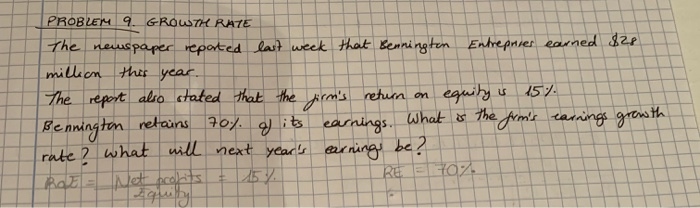 PROBLEM 9. GROWTH RATE
The newspaper reported last week that Bennington Entrepries earned $28
million this year.
The report also stated that the firm's return on equity is 15%.
Bennington retains 70% of its earnings. What is the firm's earnings growth
rate? what will next year's earnings be?
RoE = Net profits = 15% RE = 70%
Equity